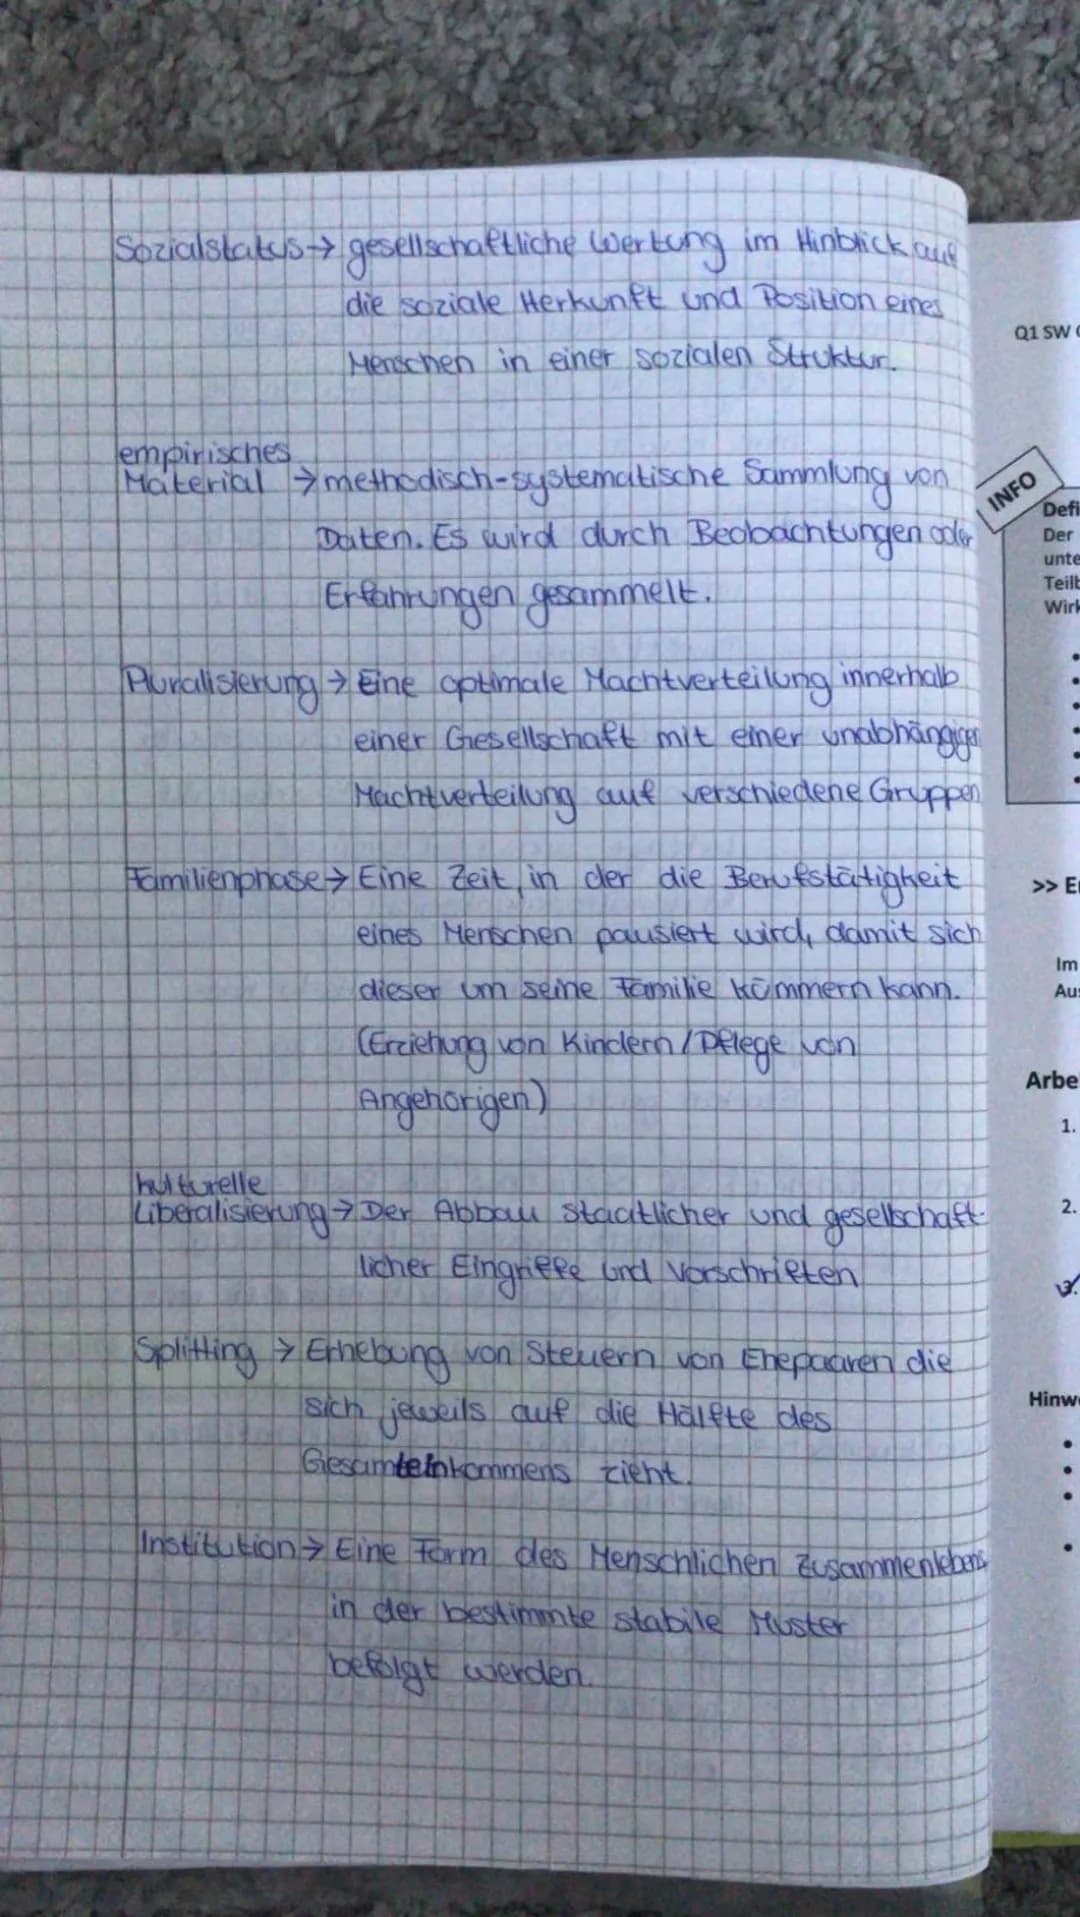 Sozialstatus → gesellschaftliche Wertung im Hinblick auf
die soziale Herkunft und Position eines
Menschen in einer sozialen Struktur.
empirisches
Material → methodisch-systematische Sammlung von
Daten. Es wird durch Beobachtungen oder
Erfahrungen gesammelt.
Pluralisierung → Eine optimale Machtverteilung innerhalb
einer Gesellschaft mit einer unabhängigen
Machtverteilung auf verschiedene Gruppen
Familienphase → Eine Zeit, in der die Berufstätigkeit
eines Menschen pausiert wird, damit sich
dieser um seine Familie kümmern kann.
(Erziehung von Kindern / Pflege von
Angehörigen)
kulturelle
Liberalisierung → Der Abbau staatlicher und gesellschaft-
licher Eingriffe und Vorschriften
Splitting → Erhebung von Steuern von Ehepaaren die
sich jeweils auf die Hälfte des
Gesamteinkommens zieht.
Institution → Eine Form des Menschlichen Zusammenlebens
in der bestimmte stabile Muster
befolgt werden.
Q1 SW
INFO
Defi
Der
unte
Teilb
Wirk
>> Er
Im
Aus
Arbe
1.
2.
3.
Hinwe